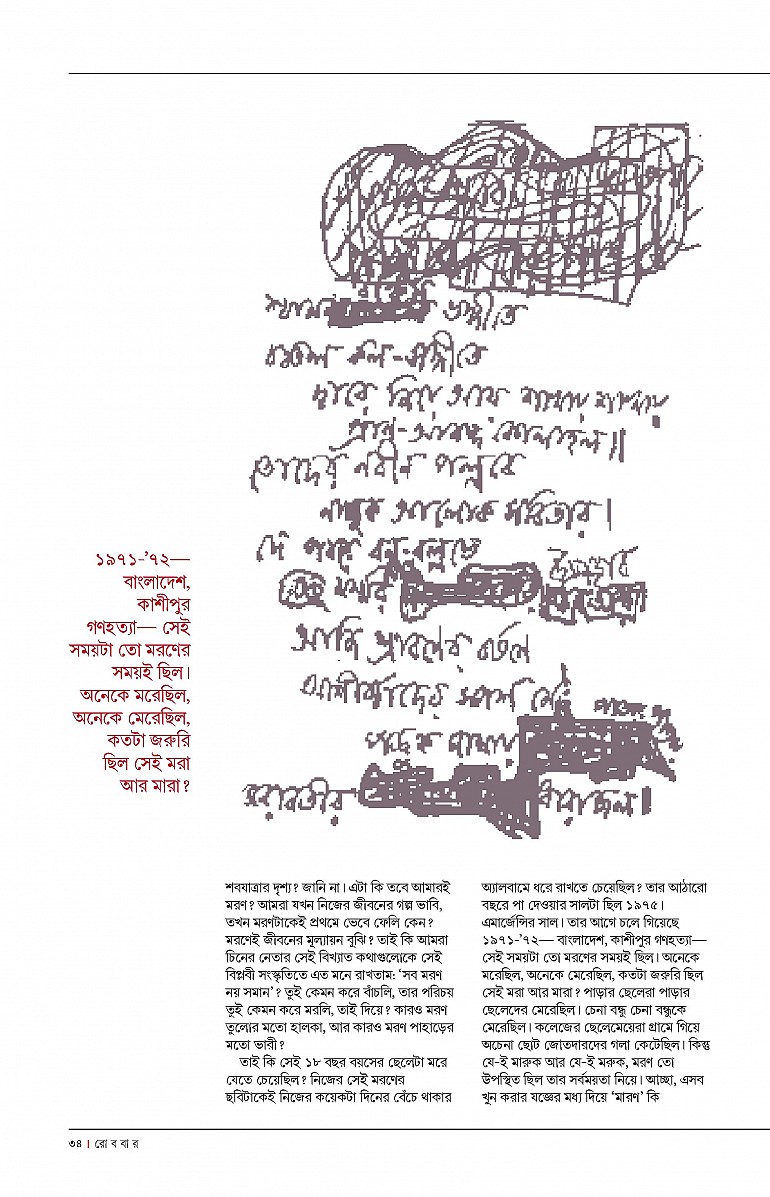 শ্যামল ভঙ্গীতে
চঞ্চল কল-সঙ্গীতে
দ্বারে নিয়ে আয় শাখায় শাখায়
প্রাণ-আনন্দ কোলাহল॥
তোদের নবীন পল্লবে
নাচুক আলোক সবিতার।
দে পবনে বন-বল্লভে
আজি শ্রাবণের বর্ষণে
আশীর্ব্বাদের স্পর্শ নে
পড়ুক মাথায়
ধারাজল।
১৯৭১-’৭২—
বাংলাদেশ,
কাশীপুর
গণহত্যা— সেই
সময়টা তো মরণের
সময়ই ছিল।
অনেকে মরেছিল,
অনেকে মেরেছিল,
কতটা জরুরি
ছিল সেই মরা
আর মারা?
শবযাত্রার দৃশ্য? জানি না। এটা কি তবে আমারই
মরণ? আমরা যখন নিজের জীবনের গল্প ভাবি,
তখন মরণটাকেই প্রথমে ভেবে ফেলি কেন?
মরণেই জীবনের মূল্যায়ন বুঝি? তাই কি আমরা
চিনের নেতার সেই বিখ্যাত কথাগুলোকে সেই
বিপ্লবী সংস্কৃতিতে এত মনে রাখতাম: ‘সব মরণ
নয় সমান’? তুই কেমন করে বাঁচলি, তার পরিচয়
তুই কেমন করে মরলি, তাই দিয়ে? কারও মরণ
তুলোর মতো হালকা, আর কারও মরণ পাহাড়ের
মতো ভারী?
তাই কি সেই ১৮ বছর বয়সের ছেলেটা মরে
যেতে চেয়েছিল? নিজের সেই মরণের
ছবিটাকেই নিজের কয়েকটা দিনের বেঁচে থাকার
অ্যালবামে ধরে রাখতে চেয়েছিল? তার আঠারো
বছরে পা দেওয়ার সালটা ছিল ১৯৭৫।
এমার্জেন্সির সাল। তার আগে চলে গিয়েছে
১৯৭১-’৭২— বাংলাদেশ, কাশীপুর গণহত্যা—
সেই সময়টা তো মরণের সময়ই ছিল। অনেকে
মরেছিল, অনেকে মেরেছিল, কতটা জরুরি ছিল
সেই মরা আর মারা? পাড়ার ছেলেরা পাড়ার
ছেলেদের মেরেছিল। চেনা বন্ধু চেনা বন্ধুকে
মেরেছিল। কলেজের ছেলেমেয়েরা গ্রামে গিয়ে
অচেনা ছোট জোতদারদের গলা কেটেছিল। কিন্তু
যে-ই মারুক আর যে-ই মরুক, মরণ তো
উপস্থিত ছিল তার সর্বময়তা নিয়ে। আচ্ছা, এসব
খুন করার যজ্ঞের মধ্য দিয়ে ‘মারণ’ কি
৩৪ । রো ব বা র